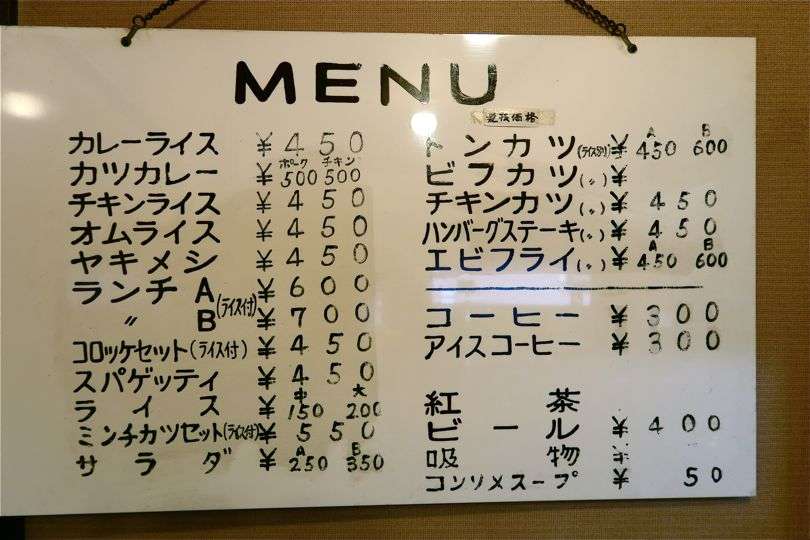 MENU
カレーライス ¥450
カツカレー ¥ ポーク500 チキン500
チキンライス ¥450
オムライス ¥450
ヤキメシ ¥450
ランチA (ライス付) ¥600
〃 B ¥700
コロッケセット(ライス付) ¥450
スパゲッティ ¥450
ライス ¥ 中150 大200
ミンチカツセット(ライス付) ¥550
サラダ ¥ A250 B350
税抜価格
トンカツ(ライス別) ¥ A450 B600
ビフカツ(〃) ¥
チキンカツ(〃) ¥450
ハンバーグステーキ(〃) ¥450
エビフライ(〃) ¥ A450 B600
コーヒー ¥300
アイスコーヒー ¥300
紅茶
ビール ¥400
吸物
コンソメスープ ¥50